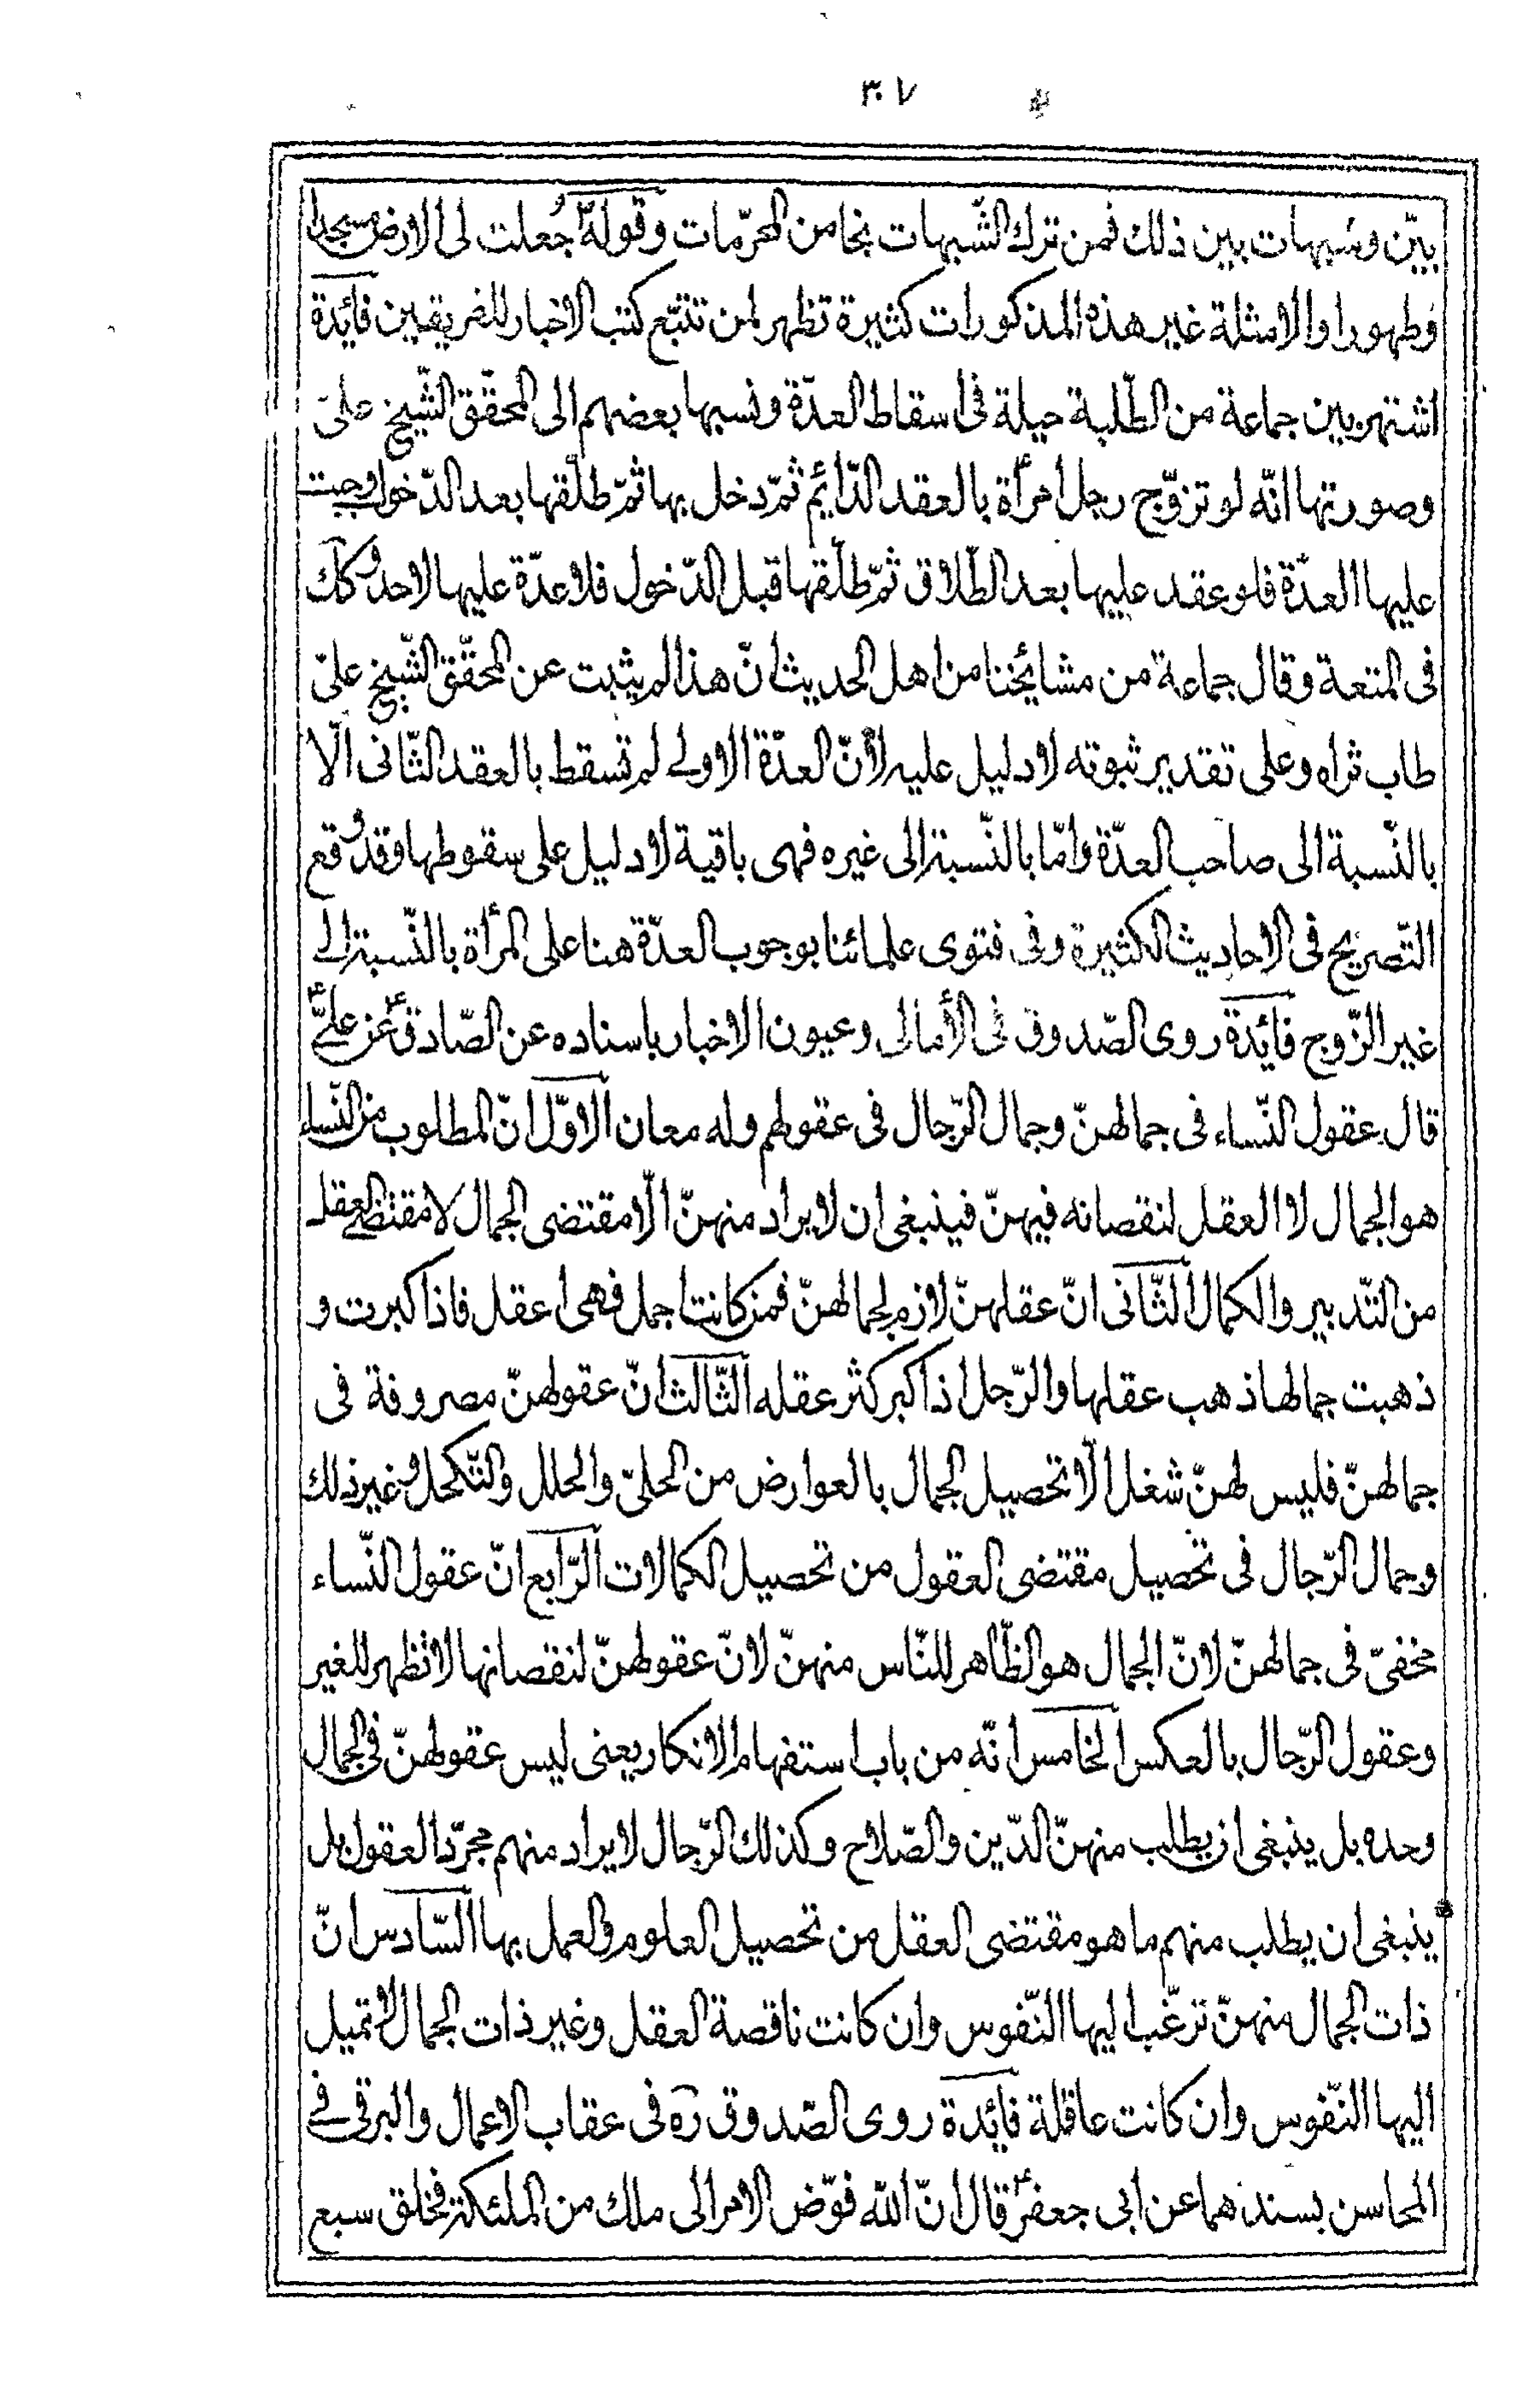 ٣٠٧
بيّن وشبهات بين ذلك فمن ترك الشّبهات نجا من المحرّمات وقوله ص جُعلت لى الارض مسجدا
وطهورا والامثلة غير هذه المذكورات كثيرة تظهر لمن تتبّع كتب الاخبار للفريقين فائدة
اشتهر بين جماعة من الطّلبة حيلة فى اسقاط العدّة ونسبها بعضهم الى المحقّق الشّيخ علىّ
وصورتها انّه لو تزوّج رجل امرأة بالعقد الدّائم ثمّ دخل بها ثمّ طلّقها بعد الدّخول وجبت
عليها العدّة فلو عقد عليها بعد الطّلاق ثمّ طلّقها قبل الدّخول فلا عدّة عليها لاحد وكك
فى المتعة وقال جماعة من مشائخنا من اهل الحديث انّ هذا لم يثبت عن المحقّق الشّيخ علىّ
طاب ثراه وعلى تقدير ثبوته لا دليل عليه لأنّ العدّة الاولى لم تسقط بالعقد الثّانى الّا
بالنّسبة الى صاحب العدّة وامّا بالنّسبة الى غيره فهى باقية لا دليل على سقوطها وقد وقع
التّصريح فى الاحاديث الكثيرة وفى فتوى علمائنا بوجوب العدّة هنا على المرأة بالنّسبة الى
غير الزّوج فائدة روى الصّدوق فى الأمالى وعيون الاخبار باسناده عن الصّادق ع عن علىّ ع
قال عقول النّساء فى جمالهنّ وجمال الرّجال فى عقولهم وله معان الاوّل انّ المطلوب من النّساء
هو الجمال لا العقل لنقصانه فيهنّ فينبغى ان لا يراد منهنّ الّا مقتضى الجمال لا مقتضى العقل
من التّدبير والكمال الثّانى انّ عقلهنّ لازم لجمالهنّ فمن كانت اجمل فهى اعقل فاذا كبرت و
ذهبت جمالها ذهب عقلها والرّجل اذا كبر كثر عقله الثّالث انّ عقولهنّ مصروفة فى
جمالهنّ فليس لهنّ شغل الّا تحصيل الجمال بالعوارض من الحلىّ والحلل والتّكحل وغير ذلك
وجمال الرّجال فى تحصيل مقتضى العقول من تحصيل الكمالات الرّابع انّ عقول النّساء
مخفىّ فى جمالهنّ لانّ الجمال هو الظّاهر للنّاس منهنّ لانّ عقولهنّ لنقصانها لا تظهر للغير
وعقول الرّجال بالعكس الخامس انّه من باب استفهام الانكار يعنى ليس عقولهنّ فى الجمال
وحده بل ينبغى ان يطلب منهنّ الدّين والصّلاح وكذلك الرّجال لا يراد منهم مجرّد العقول بل
ينبغى ان يطلب منهم ما هو مقتضى العقل من تحصيل العلوم والعمل بها السّادس انّ
ذات الجمال منهنّ ترغّب اليها النّفوس وان كانت ناقصة العقل وغير ذات الجمال لا تميل
اليها النّفوس وان كانت عاقلة فائدة روى الصّدوق ره فى عقاب الاعمال والبرقى فى
المحاسن بسندهما عن ابى جعفر ع قال انّ اللّه فوّض الامر الى ملك من الملئكة فخلق سبع